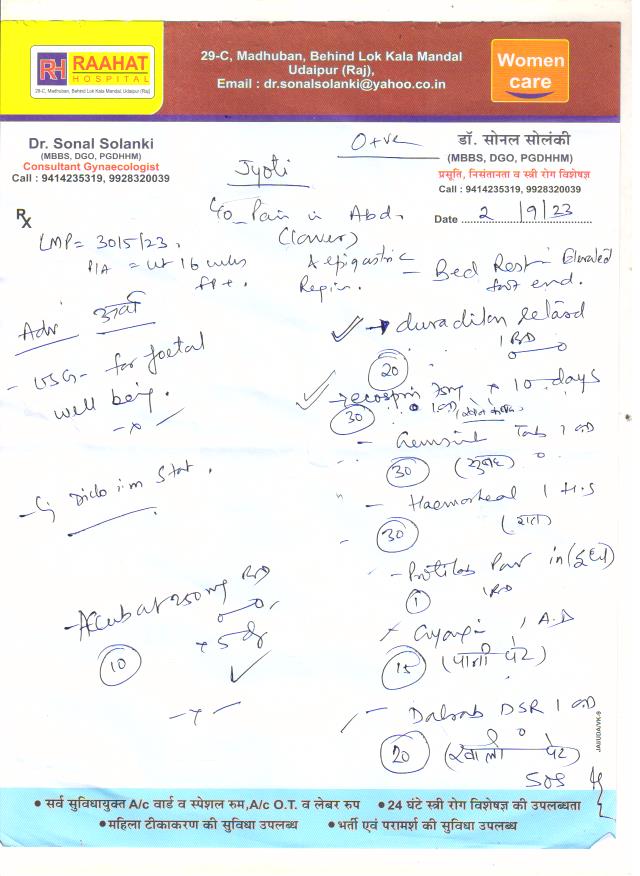 RH RAAHAT
HOSPITAL
29-C, Madhuban, Behind Lok Kala Mandal, Udaipur (Raj)
29-C, Madhuban, Behind Lok Kala Mandal
Udaipur (Raj),
Email : dr.sonalsolanki@yahoo.co.in
Women
care
Dr. Sonal Solanki
(MBBS, DGO, PGDHHM)
Consultant Gynaecologist
Call : 9414235319, 9928320039
O+ve
डॉ. सोनल सोलंकी
(MBBS, DGO, PGDHHM)
प्रसूति, निसंतानता व स्त्री रोग विशेषज्ञ
Call : 9414235319, 9928320039
Jyoti
Rx
Date 2/9/23
C/o Pain in Abd.
(Lower)
& epigastric
Region.
LMP = 30/5/23.
P/A = ut 16 wks
Adv
- USG - for foetal
well being.
- x -
- Inj Diclo i.m Stat.
250 mg BD
x 5 d
10
- x -
- Bed Rest Elevated
foot end.
duvadilan retard
1 BD
20
ecosprin 75mg x 10 days
1 OD
30
- Tab 1 OD
30 (सुबह)
- 1 H.S
30 (रात)
- in (दूध)
1 BD
1
1 A.D
15 (पानी पेट)
- DSR 1 OD
20 (खाली पेट)
SOS
JAIIUDA/VK-9
• सर्व सुविधायुक्त A/c वार्ड व स्पेशल रुम,A/c O.T. व लेबर रुप • 24 घंटे स्त्री रोग विशेषज्ञ की उपलब्धता
•महिला टीकाकरण की सुविधा उपलब्ध •भर्ती एवं परामर्श की सुविधा उपलब्ध